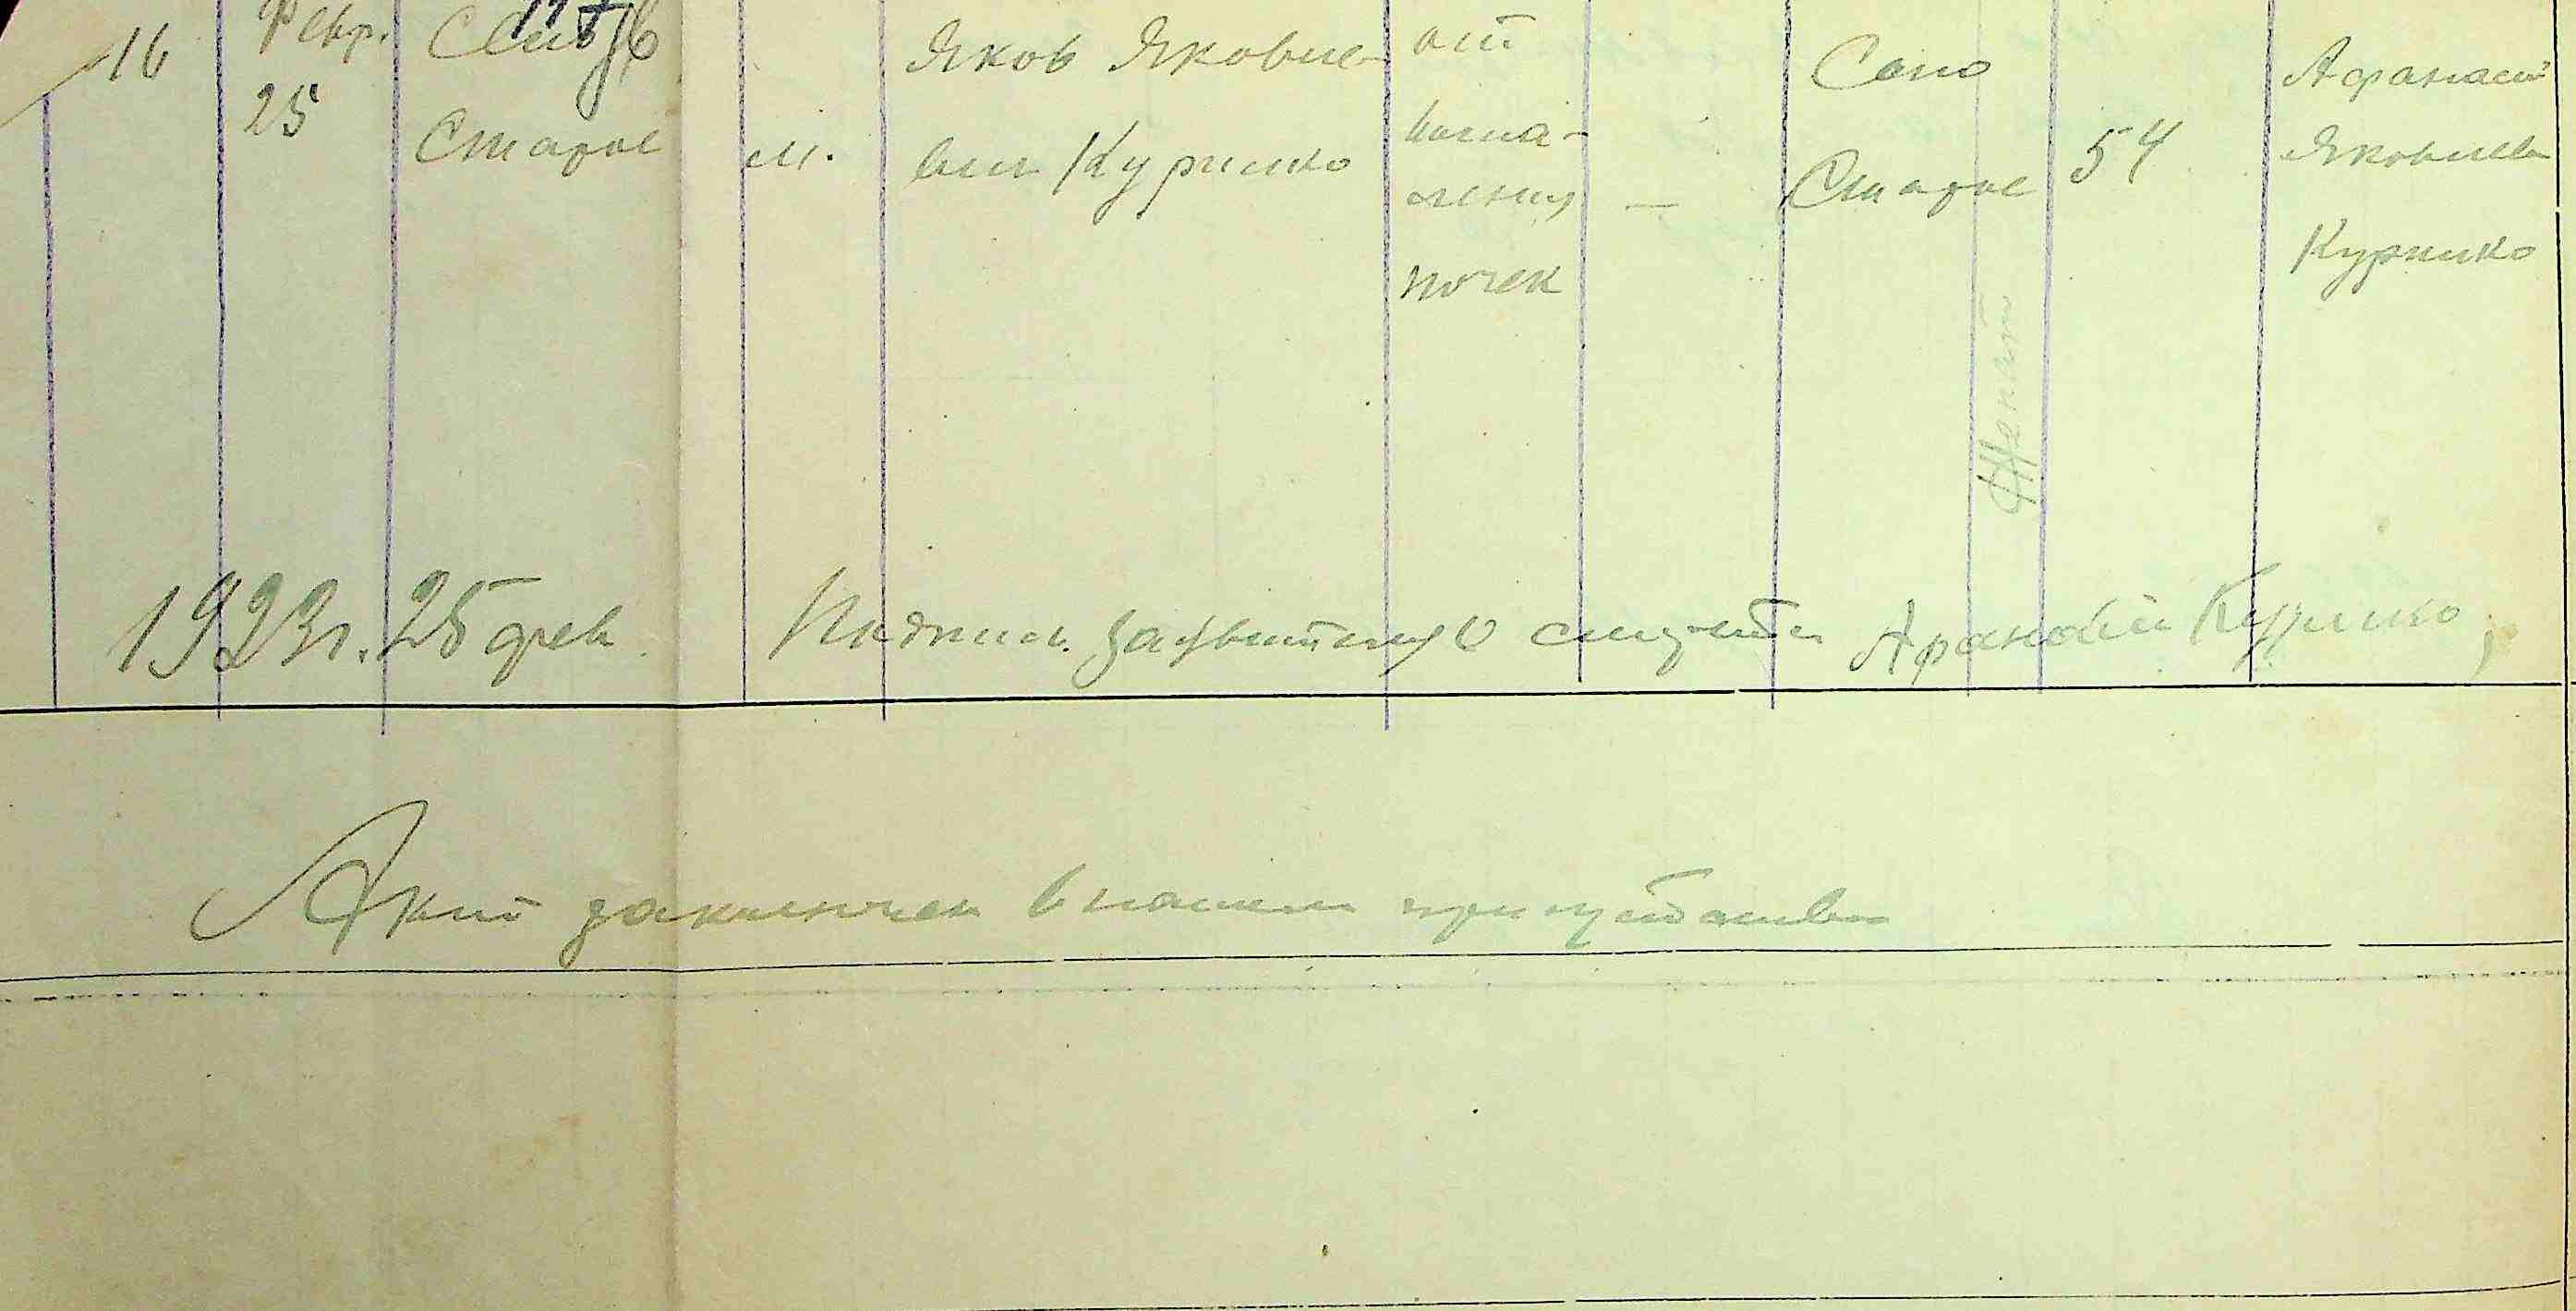 16
Февр.
25
Село
Старое
м.
Яков Яковле-
вич Куришко
от
воспа-
ления
почек
—
Село
Старое
Женат
54
Афанасий
Яковлев
Куришко
1923 г. 25 фев.
Подпись заявителя о смерти Афанасий Куришко,
Акт заключен в нашем присутствии